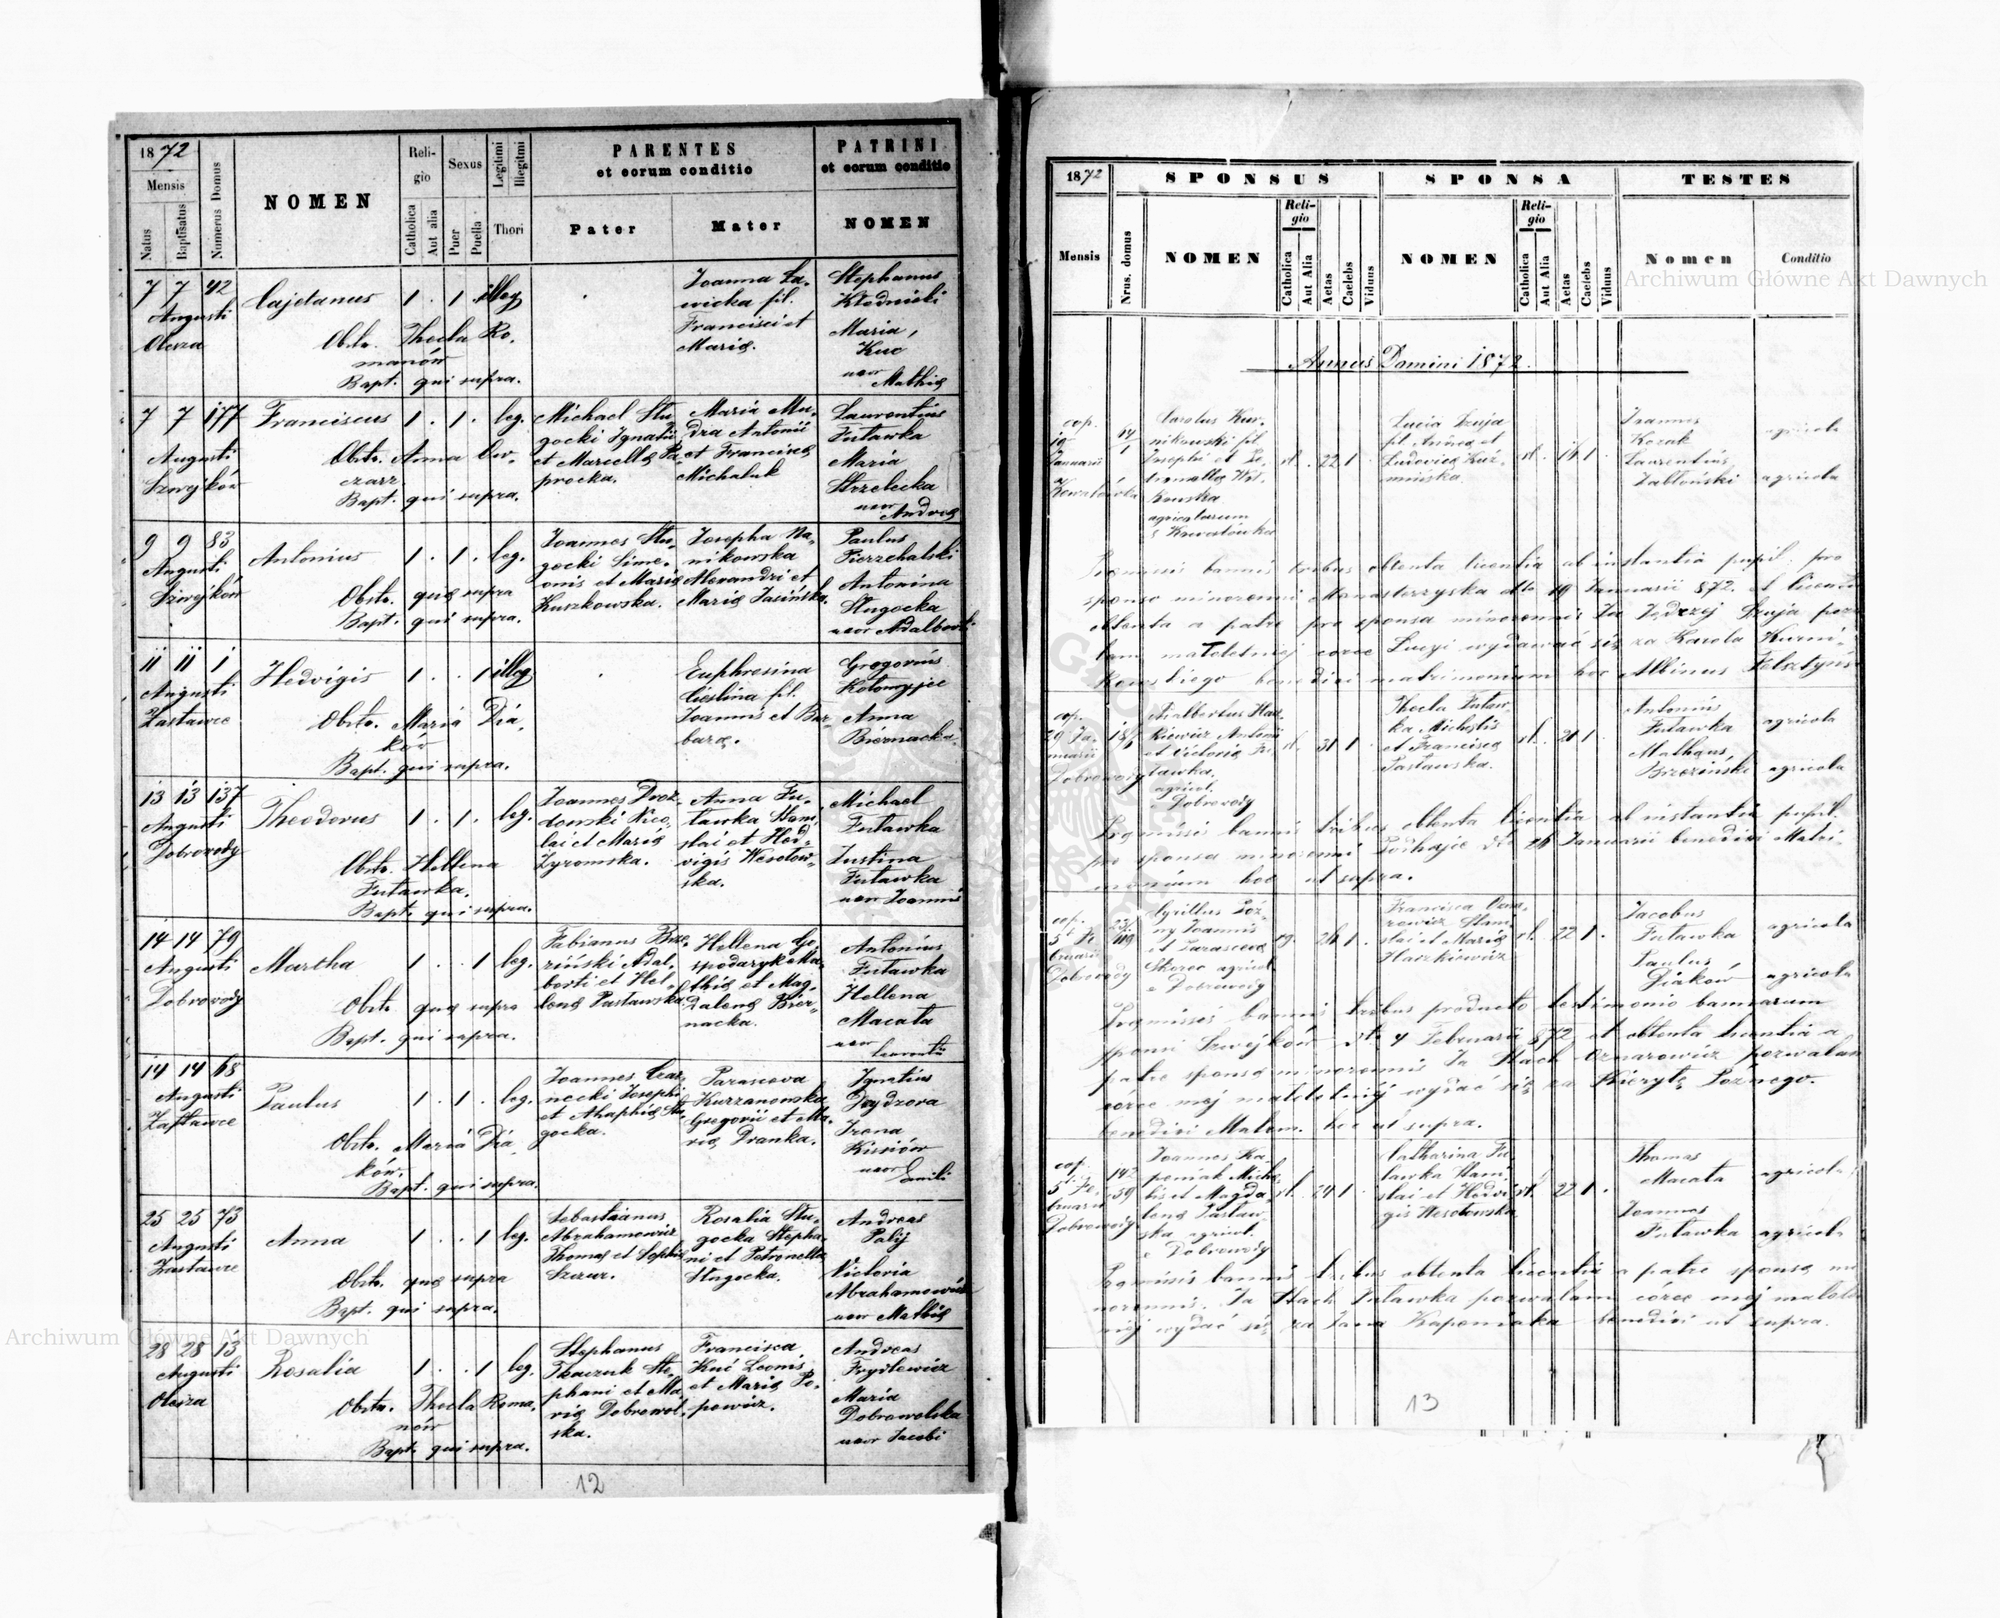 1872
Mensis
Natus
Baptisatus
Numerus Domus
NOMEN
Religio
Catholica
Aut alia
Sexus
Puer
Puella
Legitimi
Illegitmi
Thori
PARENTES
et eorum conditio
Pater
Mater
PATRINI
et eorum conditio
NOMEN
7 7 42
Augusti
Olesza
Cajetanus
1 . 1 . illeg
Obstr. Thecla Ro-
manów
Bapt. qui supra.
Joanna
fil.
Francisci et
Mariæ.
Stephanus
Kłodnicki
Maria
Kuc
uxor
Mathiæ
7 7 177
Augusti
Szwejków
Franciscus
1 . 1 . leg.
Obstr. Anna Ow-
czarz
Bapt. qui supra.
Michael Stu-
gocki Ignatii
et Marcellæ Pa-
procka.
Maria Mu-
dra Antonii
et Franciscæ
Michaluk
Laurentius
Futawka
Maria
Strzelecka
uxor
Andreæ
9 9 83
Augusti
Szwejków
Antonius
1 . 1 . leg.
Obstr. quæ supra
Bapt. qui supra.
Joannes Stu-
gocki Sime-
onis et Mariæ
Kuszkowska.
Josepha Na-
nikowska
Alexandri et
Mariæ Jasińska.
Paulus
Pierzchalski
Antonina
Stugocka
uxor Adalberti
11 11 1
Augusti
Zastawce
Hedvigis
1 . . 1 illeg
Obstr. Maria Dia-
ków
Bapt. qui supra.
Euphrosina
Cieslina fil.
Joannis et Bar-
baræ.
Gregorius
Kołomyjec
Anna
Biernacka
13 13 137
Augusti
Dobrowody
Theodorus
1 . 1 . leg.
Obstr. Hellena
Futawka.
Bapt. qui supra.
Joannes Droz-
dowski Nico-
lai et Mariæ
Zyromska.
Anna Fu-
tawka Stani-
slai et Hed-
vigis Wesołow-
ska.
Michael
Futawka
Justina
Futawka
uxor Joannis
14 14 79
Augusti
Dobrowody
Martha
1 . . 1 leg.
Obstr. quæ supra
Bapt. qui supra.
Fabianus Brze-
ziński Adal-
berti et Hel-
lenæ Pastawska
Hellena Go-
spodaryk Ma-
thiæ et Mag-
dalenæ Bier-
nacka.
Antonius
Futawka
Hellena
Macata
uxor
14 14 68
Augusti
Zastawce
Paulus
1 . 1 . leg.
Obstr. Maria Dia-
ków.
Bapt. qui supra.
Joannes Czar-
necki Josephi
et Ahaphiæ Stu-
gocka.
Parasceva
Kurzanowska
Gregorii et Ma-
riæ Dranka.
Ignatius
Dydzora
Irena
Kissiów
uxor
25 25 73
Augusti
Zastawce
Anna
1 . . 1 leg.
Obstr. quæ supra
Bapt. qui supra.
Sebastianus
Abrahamowicz
Thomæ et Sophiæ
Szczur.
Rosalia Stu-
gocka Stepha-
ni et Petronellæ
Stugocka.
Andreas
Palij
Victoria
Abrahamowicz
uxor Mathiæ
28 28 13
Augusti
Olesza
Rosalia
1 . . 1 leg.
Obstr. Thecla Roma-
nów
Bapt. qui supra.
Stephanus
Tkaczuk Ste-
phani et Ma-
riæ Dobrowol-
ska.
Francisca
Kuć Leonis
et Mariæ Po-
powicz.
Andreas
Frydlewicz
Maria
Dobrowolska
uxor Jacobi
12
1872
Mensis
Nrus. domus
SPONSUS
NOMEN
Religio
Catholica
Aut Alia
Aetas
Caelebs
Viduus
SPONSA
NOMEN
Religio
Catholica
Aut Alia
Aetas
Caelebs
Viduus
TESTES
Nomen
Conditio
Annus Domini 1872.
cop.
19
Januarii
Carolus Kur-
nikowski fil.
Josephi et Pe-
tronellæ
agricolarum
22 1
Lucia Szuja
fil. Andreæ et
Ludovicæ Kuź-
mińska
Joannes
Kozak
Laurentius
Jabłoński
agricola
agricola
Præmissis bannis tribus obtenta licentia ab instantia pupil. pro
sponso minorenni Monasterzyska dto 19 Januarii 872. et licentia
obtenta a patre pro sponsa minorenni: Ja Jędrzej Szuja pozwa
lam małoletniej córce Lucyi wydawać się za Karola Kurni-
kowskiego benedixi matrimonium hoc Albinus
cop.
29 Ja-
nuarii
Dobrowody
Adalbertus Har-
kiewicz Antonii
et Victoriæ Fu-
tawka.
agricol.
e Dobrowody
31 1
Thecla Futaw-
ka Michælis
et Franciscæ
Pastawska.
21 1
Antonius
Futawka
Mathæus
Brzeziński
agricola
agricola
Præmissis bannis tribus obtenta licentia ab instantia pupil.
pro sponsa minorenni Podhajce dto 26 Januarii benedixi Matri-
monium hoc ut supra.
cop.
5 Fe-
bruarii
Dobrowody
Cyrillus Póź-
ny Joannis
et Parascevæ
Skorec agricol.
e Dobrowody
26 1
Francisca
Stani-
slai et Mariæ
Harzkiewicz
22 1
Jacobus
Futawka
Paulus
Diaków
agricola
agricola
Præmissis bannis tribus producto testimonio bannorum
sponsi Szwejków dto 4 Februarii 872 et obtenta licentia a
patre sponsæ minorennis Ja Stach pozwalam
córce mej małoletniéj wydać się za Kieryłę Póżnego.
benedixi Matrm. hoc ut supra.
cop.
5 Fe-
bruarii
Dobrowody
142
39
Joannes Ka-
poniak Micha-
elis et Magda-
lenæ Pastaw-
ska agricol.
e Dobrowody
24 1
Catharina Fu-
tawka Stani-
slai et Hedvi-
gis Wesołowska
22 1
Thomas
Macata
Joannes
Futawka
agricola
agricola
Præmissis bannis tribus obtenta licentia a patre sponsæ mi
norennis. Ja Stach Futawka pozwalam córce mej małolet
niéj wydać się za Jana Kaponiaka benedixi ut supra.
13
Archiwum Główne Akt Dawnych
Archiwum Główne Akt Dawnych